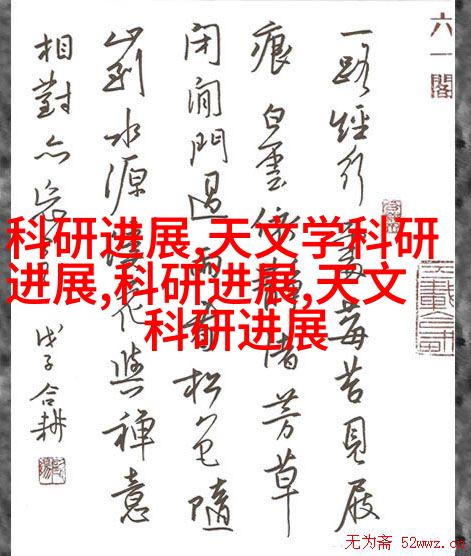 六一閣
一路經行處莓苔見屐
痕白雲依靜渚芳草
閉閒門過雨看松色隨
山到水源溪花與禪意
相對亦忘言
戊子合耕
科研进展,天文学科研
进展,科研进展,天文
科研进展
无为斋 52wwz.c